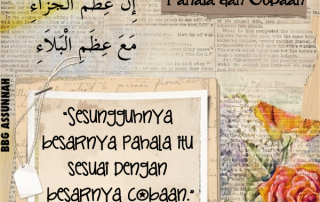 Pahala dan Cobaan
إِنَّ عِظَمَ الْجَزَاءِ
مَعَ عِظَمِ الْبَلَاءِ
BBG ASSUNNAH
"Sesungguhnya
besarnya pahala itu
sesuai dengan
besarnya cobaan."